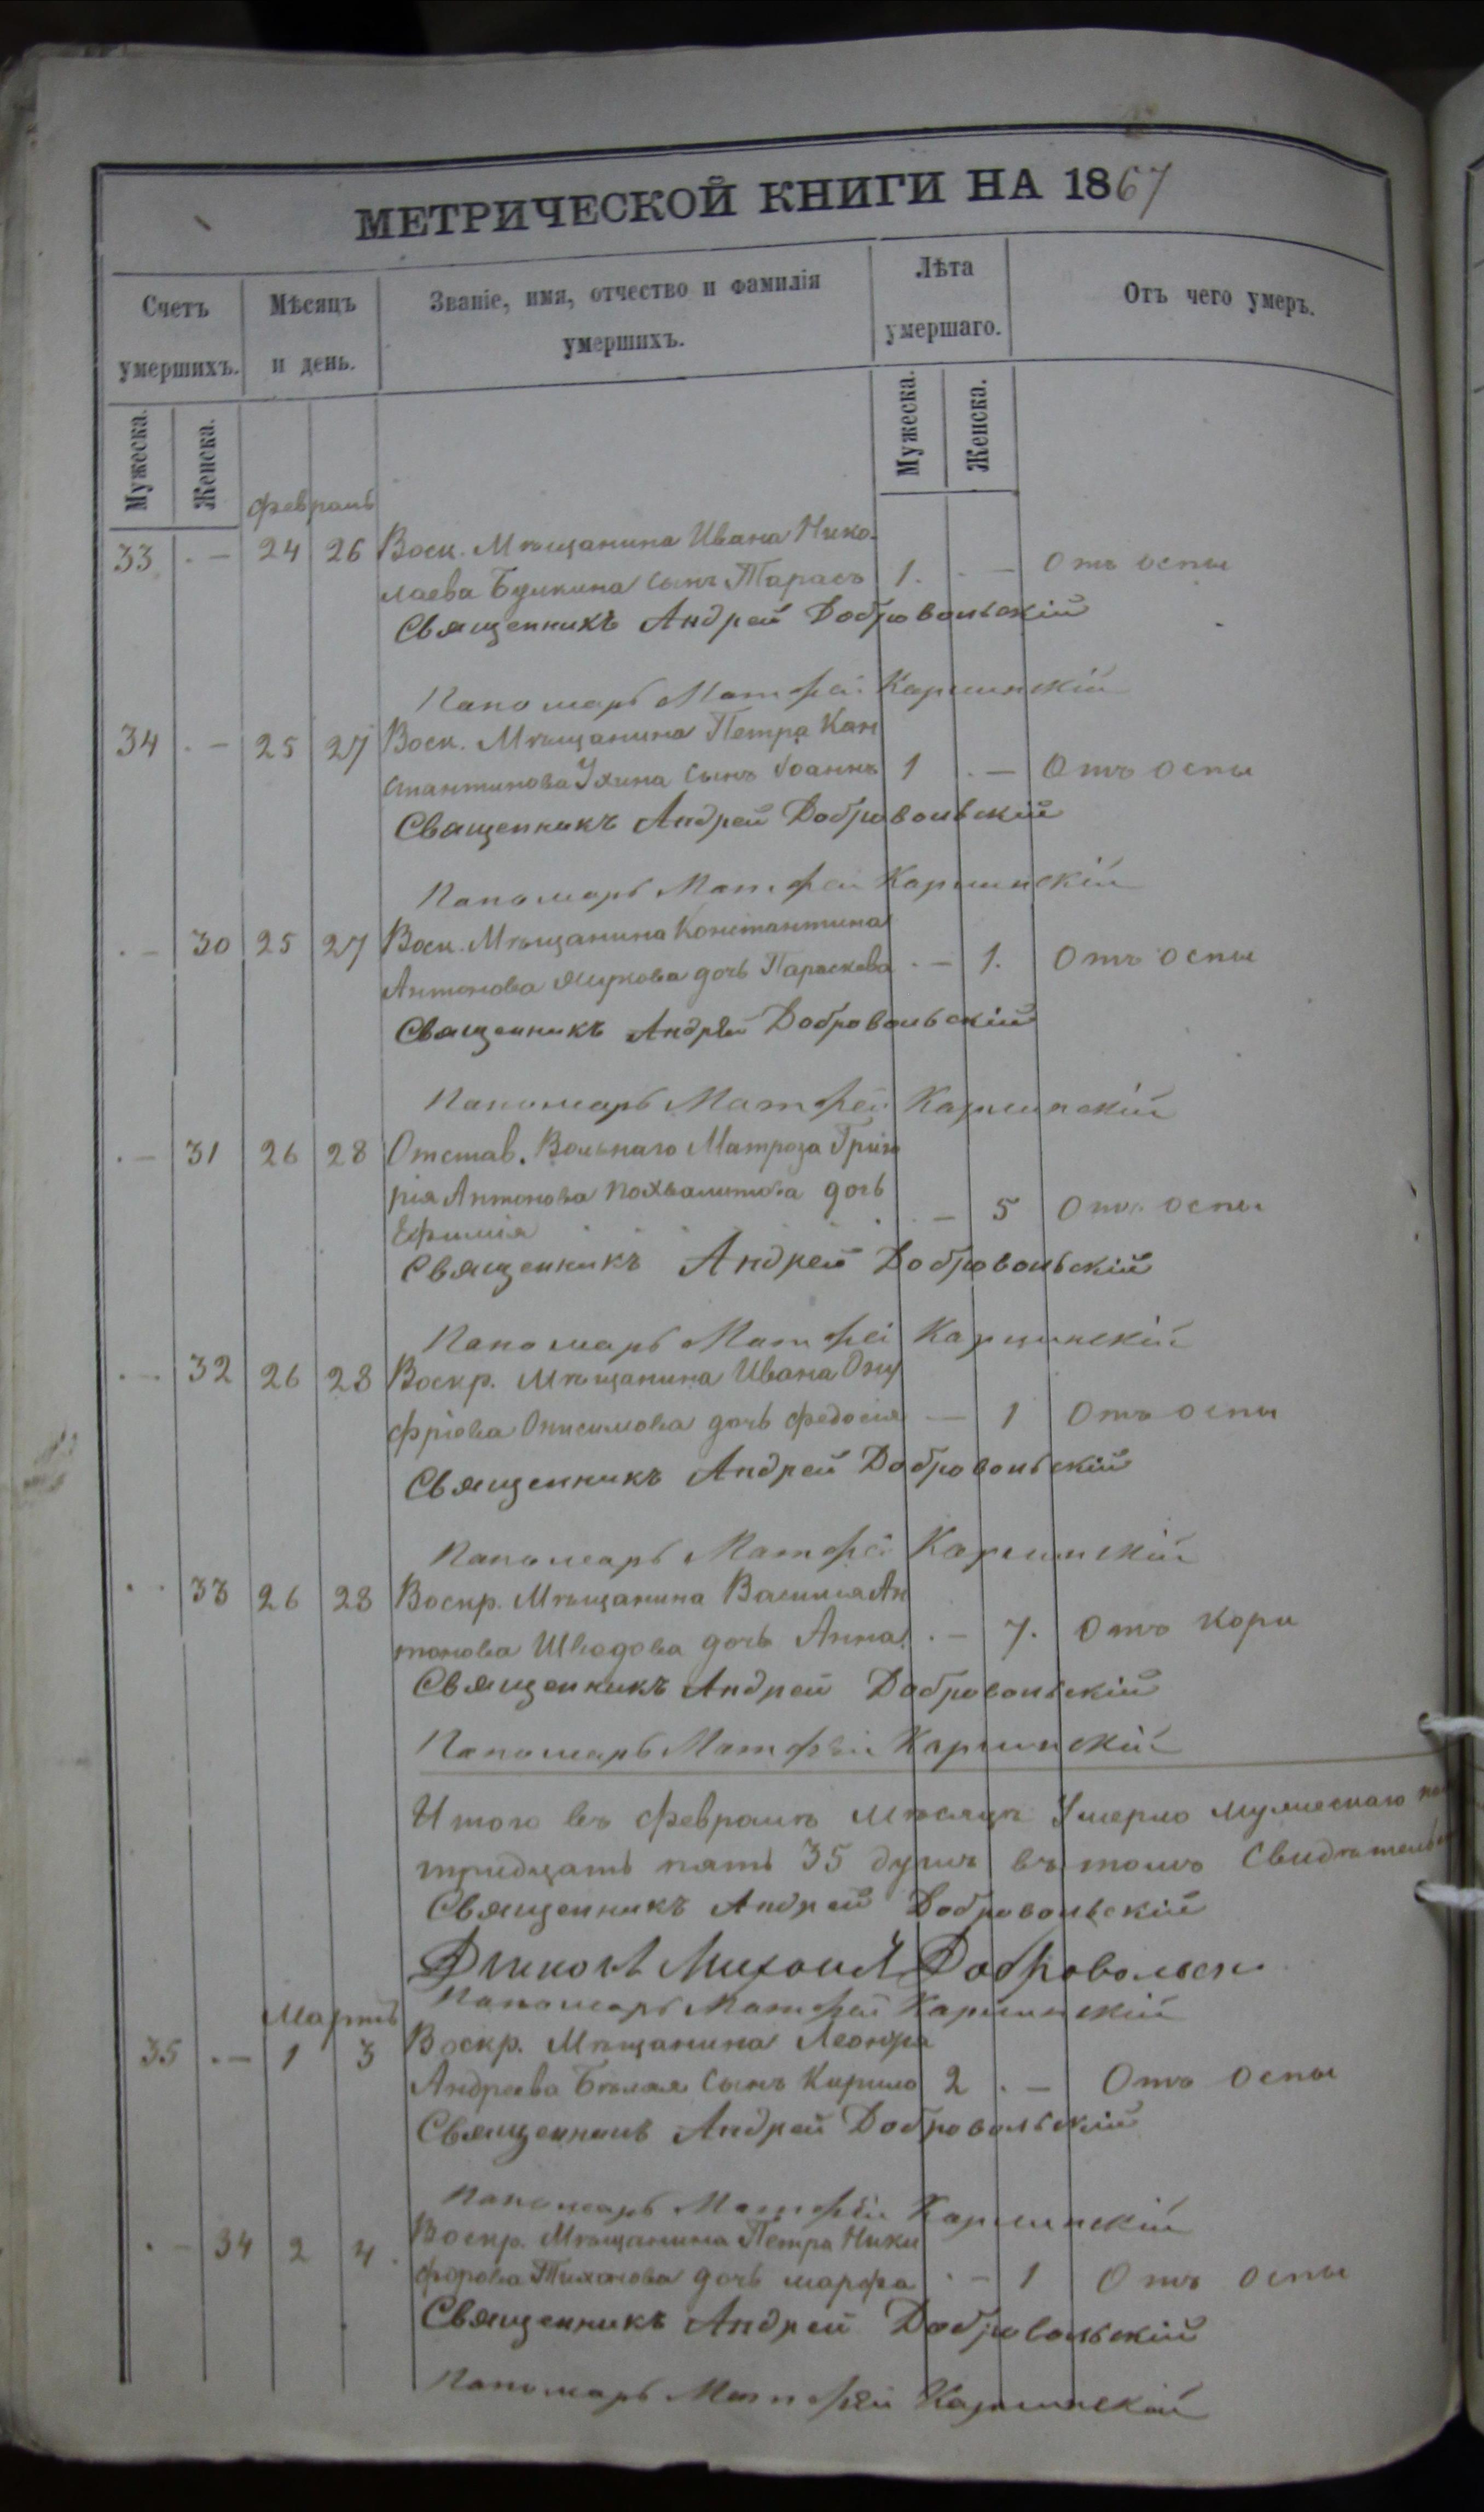 МЕТРИЧЕСКОЙ КНИГИ НА 1867
Счетъ умершихъ.
Мѣсяцъ и день.
Званіе, имя, отчество и фамилія умершихъ.
Лѣта умершаго.
Отъ чего умеръ.
Мужеска.
Женска.
Мужеска.
Женска.
февраль
33 . — 24 26 Воск. Мѣщанина Ивана Нико-
лаева Булкина сынъ Тарасъ 1. . — Отъ оспы
Священникъ Андрей Добровольскій
Пономарь Матфей Карминскій
34 . — 25 27 Воск. Мѣщанина Петра Кон
стантинова Ухина сынъ Іоаннъ 1 . — Отъ оспы
Священникъ Андрей Добровольскій
Пономарь Матфей Карминскій
. — 30 25 27 Воск. Мѣщанина Константина
Антонова дочь Параскева . — 1. Отъ оспы
Священникъ Андрей Добровольскій
Пономарь Матфей Карминскій
. — 31 26 28 Отстав. Вольнаго Матроза Григо
рія Антонова Похвалитова дочь
Ефимія . — 5 Отъ оспы
Священникъ Андрей Добровольскій
Пономарь Матфей Карминскій
. — 32 26 28 Воскр. Мѣщанина Ивана Ону
фріева Онисимова дочь Федосія — 1 Отъ оспы
Священникъ Андрей Добровольскій
Пономарь Матфей Карминскій
. . 33 26 28 Воскр. Мѣщанина Василія Ан
тонова Шведова дочь Анна . — 7. Отъ кори
Священникъ Андрей Добровольскій
Пономарь Матфей Карминскій
Итого въ февралѣ мѣсяцѣ Умерло мужескаго
тридцать пять 35 душъ въ томъ
Священникъ Андрей Добровольскій
Михаилъ
Пономарь Матфей Карминскій
Мартъ
35 . — 1 3 Воскр. Мѣщанина
Андреева Бѣлая сынъ Кирило 2 . — Отъ оспы
Андрей Добровольскій
Пономарь Матфей Карминскій
. — 34 2 4 Воскр. Мѣщанина Петра Ники
форова Тихонова дочь марфа . — 1 Отъ оспы
Священникъ Андрей Добровольскій
Пономарь Матфей Карминскій